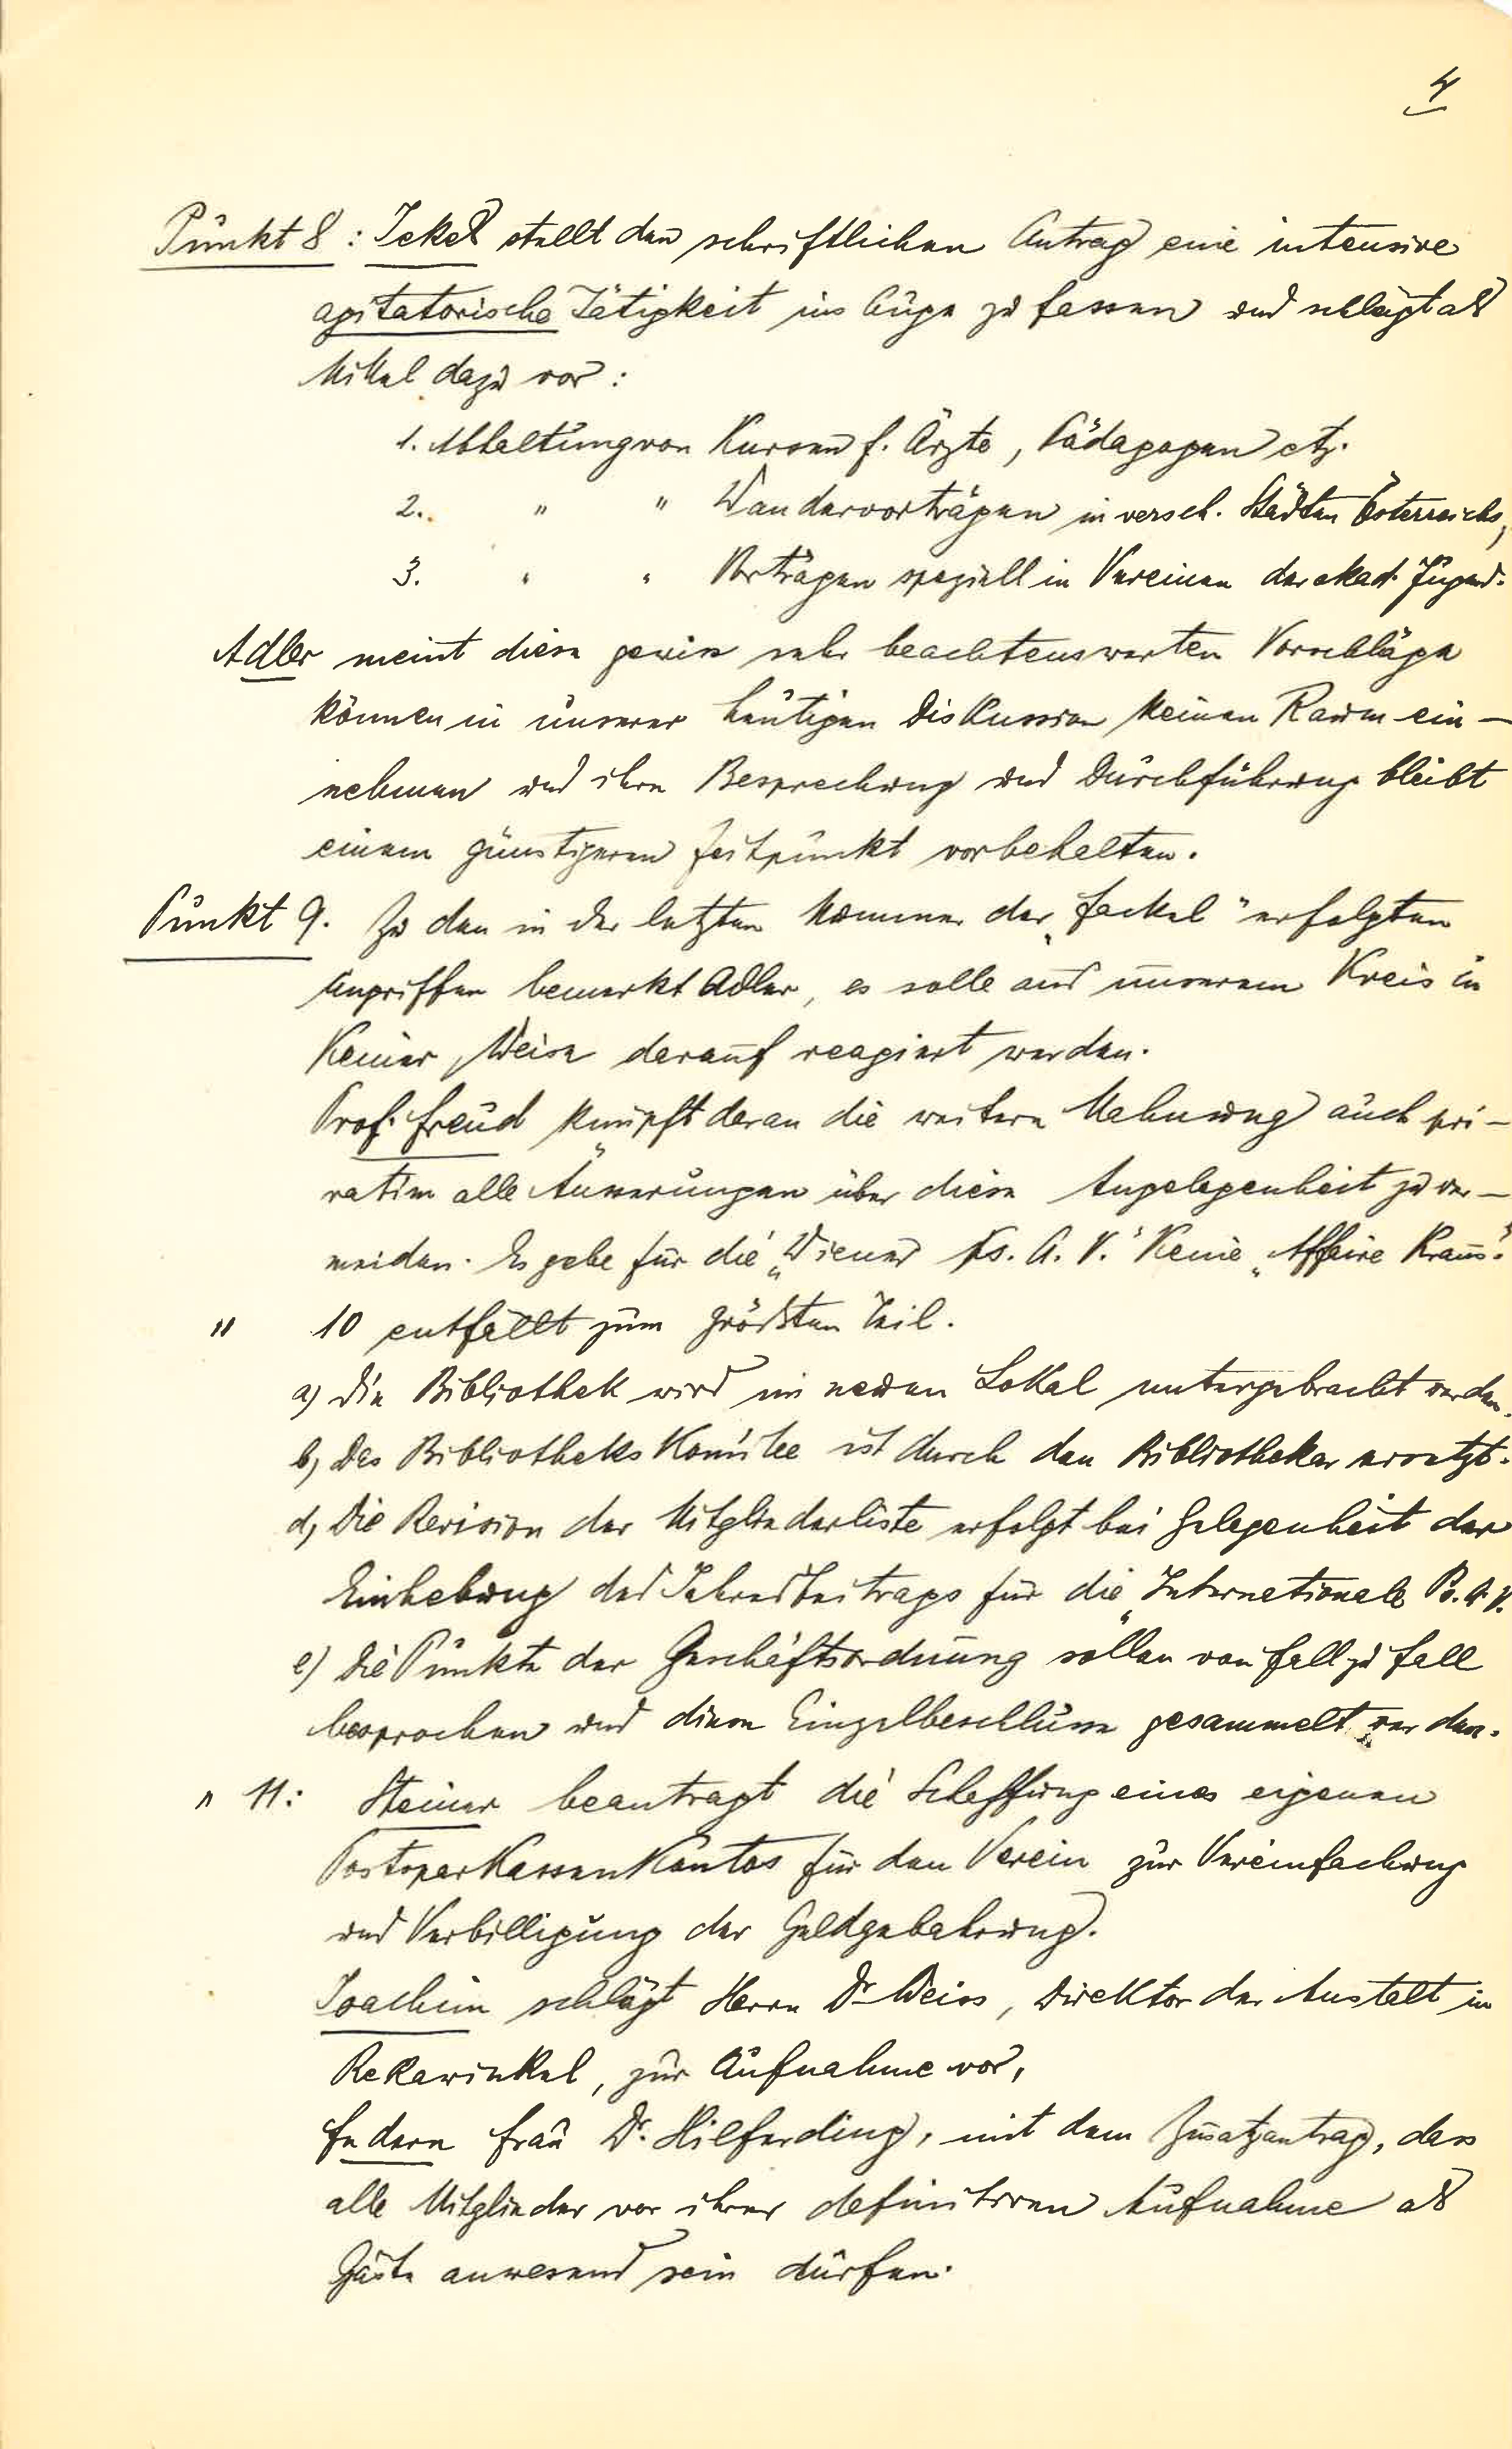 4
Punkt 8 : Jekels stellt den schriftlichen Antrag eine intensive
agitatorische Tätigkeit ins Auge zu fassen und schlägt als
Mittel dazu vor :
1. Abhaltung von Kursen f. Ärzte, Pädagogen etz.
2. " " Wandervorträgen in versch. Städten Österreichs,
3. " " Vorträgen speziell in Vereinen der akad. Jugend.
Adler meint diese gewiss sehr beachtenswerten Vorschläge
können in unserer heutigen Diskussion keinen Raum ein-
nehmen und ihre Besprechung und Durchführung bleibt
einem günstigeren Zeitpunkt vorbehalten.
Punkt 9. Zu den in der letzten Nummer der „Fackel" erfolgten
Angriffen bemerkt Adler, es solle aus unserem Kreis in
keiner Weise darauf reagiert werden.
Prof. Freud knüpft daran die weitere Mahnung auch pri-
vatim alle Äusserungen über diese Angelegenheit zu ver-
meiden. Es gebe für die „Wiener Ps. A. V." keine „Affaire Kraus".
" 10 entfällt zum größten Teil.
a) Die Bibliothek wird im neuen Lokal untergebracht werden.
b) Das Bibliothekskomitee ist durch den Bibliothekar ersetzt.
d) Die Revision der Mitgliederliste erfolgt bei Gelegenheit der
Einhebung des Jahresbeitrags für die „Internationale Ps. A. V.
e) Die Punkte der Geschäftsordnung sollen von Fall zu Fall
besprochen und diese Einzelbeschlüsse gesammelt werden.
" 11: Steiner beantragt die Schaffung eines eigenen
Postsparkassenkontos für den Verein zur Vereinfachung
und Verbilligung der Geldgebahrung.
Joachim schlägt Herrn Dr Weiss, Direktor der Anstalt in
Rekawinkel, zur Aufnahme vor,
Federn Frau Dr. Hilferding, mit dem Zusatzantrag, dass
alle Mitglieder vor ihrer definitiven Aufnahme als
Gäste anwesend sein dürfen.